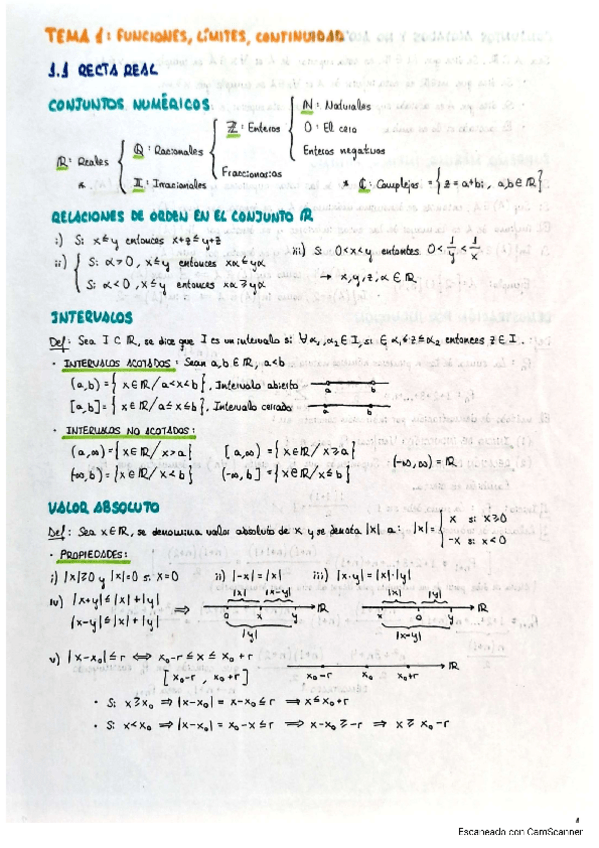 TEMA 1: FUNCIONES, LÍMITES, CONTINUIDAD
1.1 RECTA REAL
CONJUNTOS NUMÉRICOS
ℝ: Reales { ℚ: Racionales { ℤ: Enteros { ℕ: Naturales
0: El cero
Enteros negativos
Fraccionarios
𝕀: Irracionales
* ℂ: Complejos = {z = a+bi, a,b ∈ ℝ}
RELACIONES DE ORDEN EN EL CONJUNTO ℝ
i) Si x≤y entonces x+z≤y+z
ii) { Si α>0, x≤y entonces xα≤yα
Si α<0, x≤y entonces xα≥yα
iii) Si 0<x<y entonces 0<1/y<1/x
→ x,y,z,α ∈ ℝ
INTERVALOS
Def: Sea I ⊂ ℝ, se dice que I es un intervalo si ∀α₁,α₂ ∈ I, si α₁≤z≤α₂ entonces z ∈ I.
· INTERVALOS ACOTADOS: Sean a,b ∈ ℝ, a<b
(a,b) = {x∈ℝ/a<x<b}. Intervalo abierto a b
[a,b] = {x∈ℝ/a≤x≤b}. Intervalo cerrado a b
· INTERVALOS NO ACOTADOS:
(a,∞) = {x∈ℝ/x>a} [a,∞) = {x∈ℝ/x≥a} (-∞,∞) = ℝ
(-∞,b) = {x∈ℝ/x<b} (-∞,b] = {x∈ℝ/x≤b}
VALOR ABSOLUTO
Def: Sea x∈ℝ, se denomina valor absoluto de x y se denota |x| a: |x| = { x si x≥0
-x si x<0
· PROPIEDADES:
i) |x|≥0 y |x|=0 si x=0 ii) |-x|=|x| iii) |x·y|=|x|·|y|
iv) |x+y|≤|x|+|y|
|x-y|≤|x|+|y| ⇒ |x| |x-y| 0 x y ℝ |y| |x| |y| x 0 y ℝ |x-y|
v) |x-x₀|≤r ⇔ x₀-r≤x≤x₀+r
[x₀-r, x₀+r] x₀-r x₀ x₀+r ℝ
· Si x≥x₀ ⇒ |x-x₀| = x-x₀≤r ⇒ x≤x₀+r
· Si x<x₀ ⇒ |x-x₀| = x₀-x≤r ⇒ x-x₀≥-r ⇒ x≥x₀-r
1
Escaneado con CamScanner